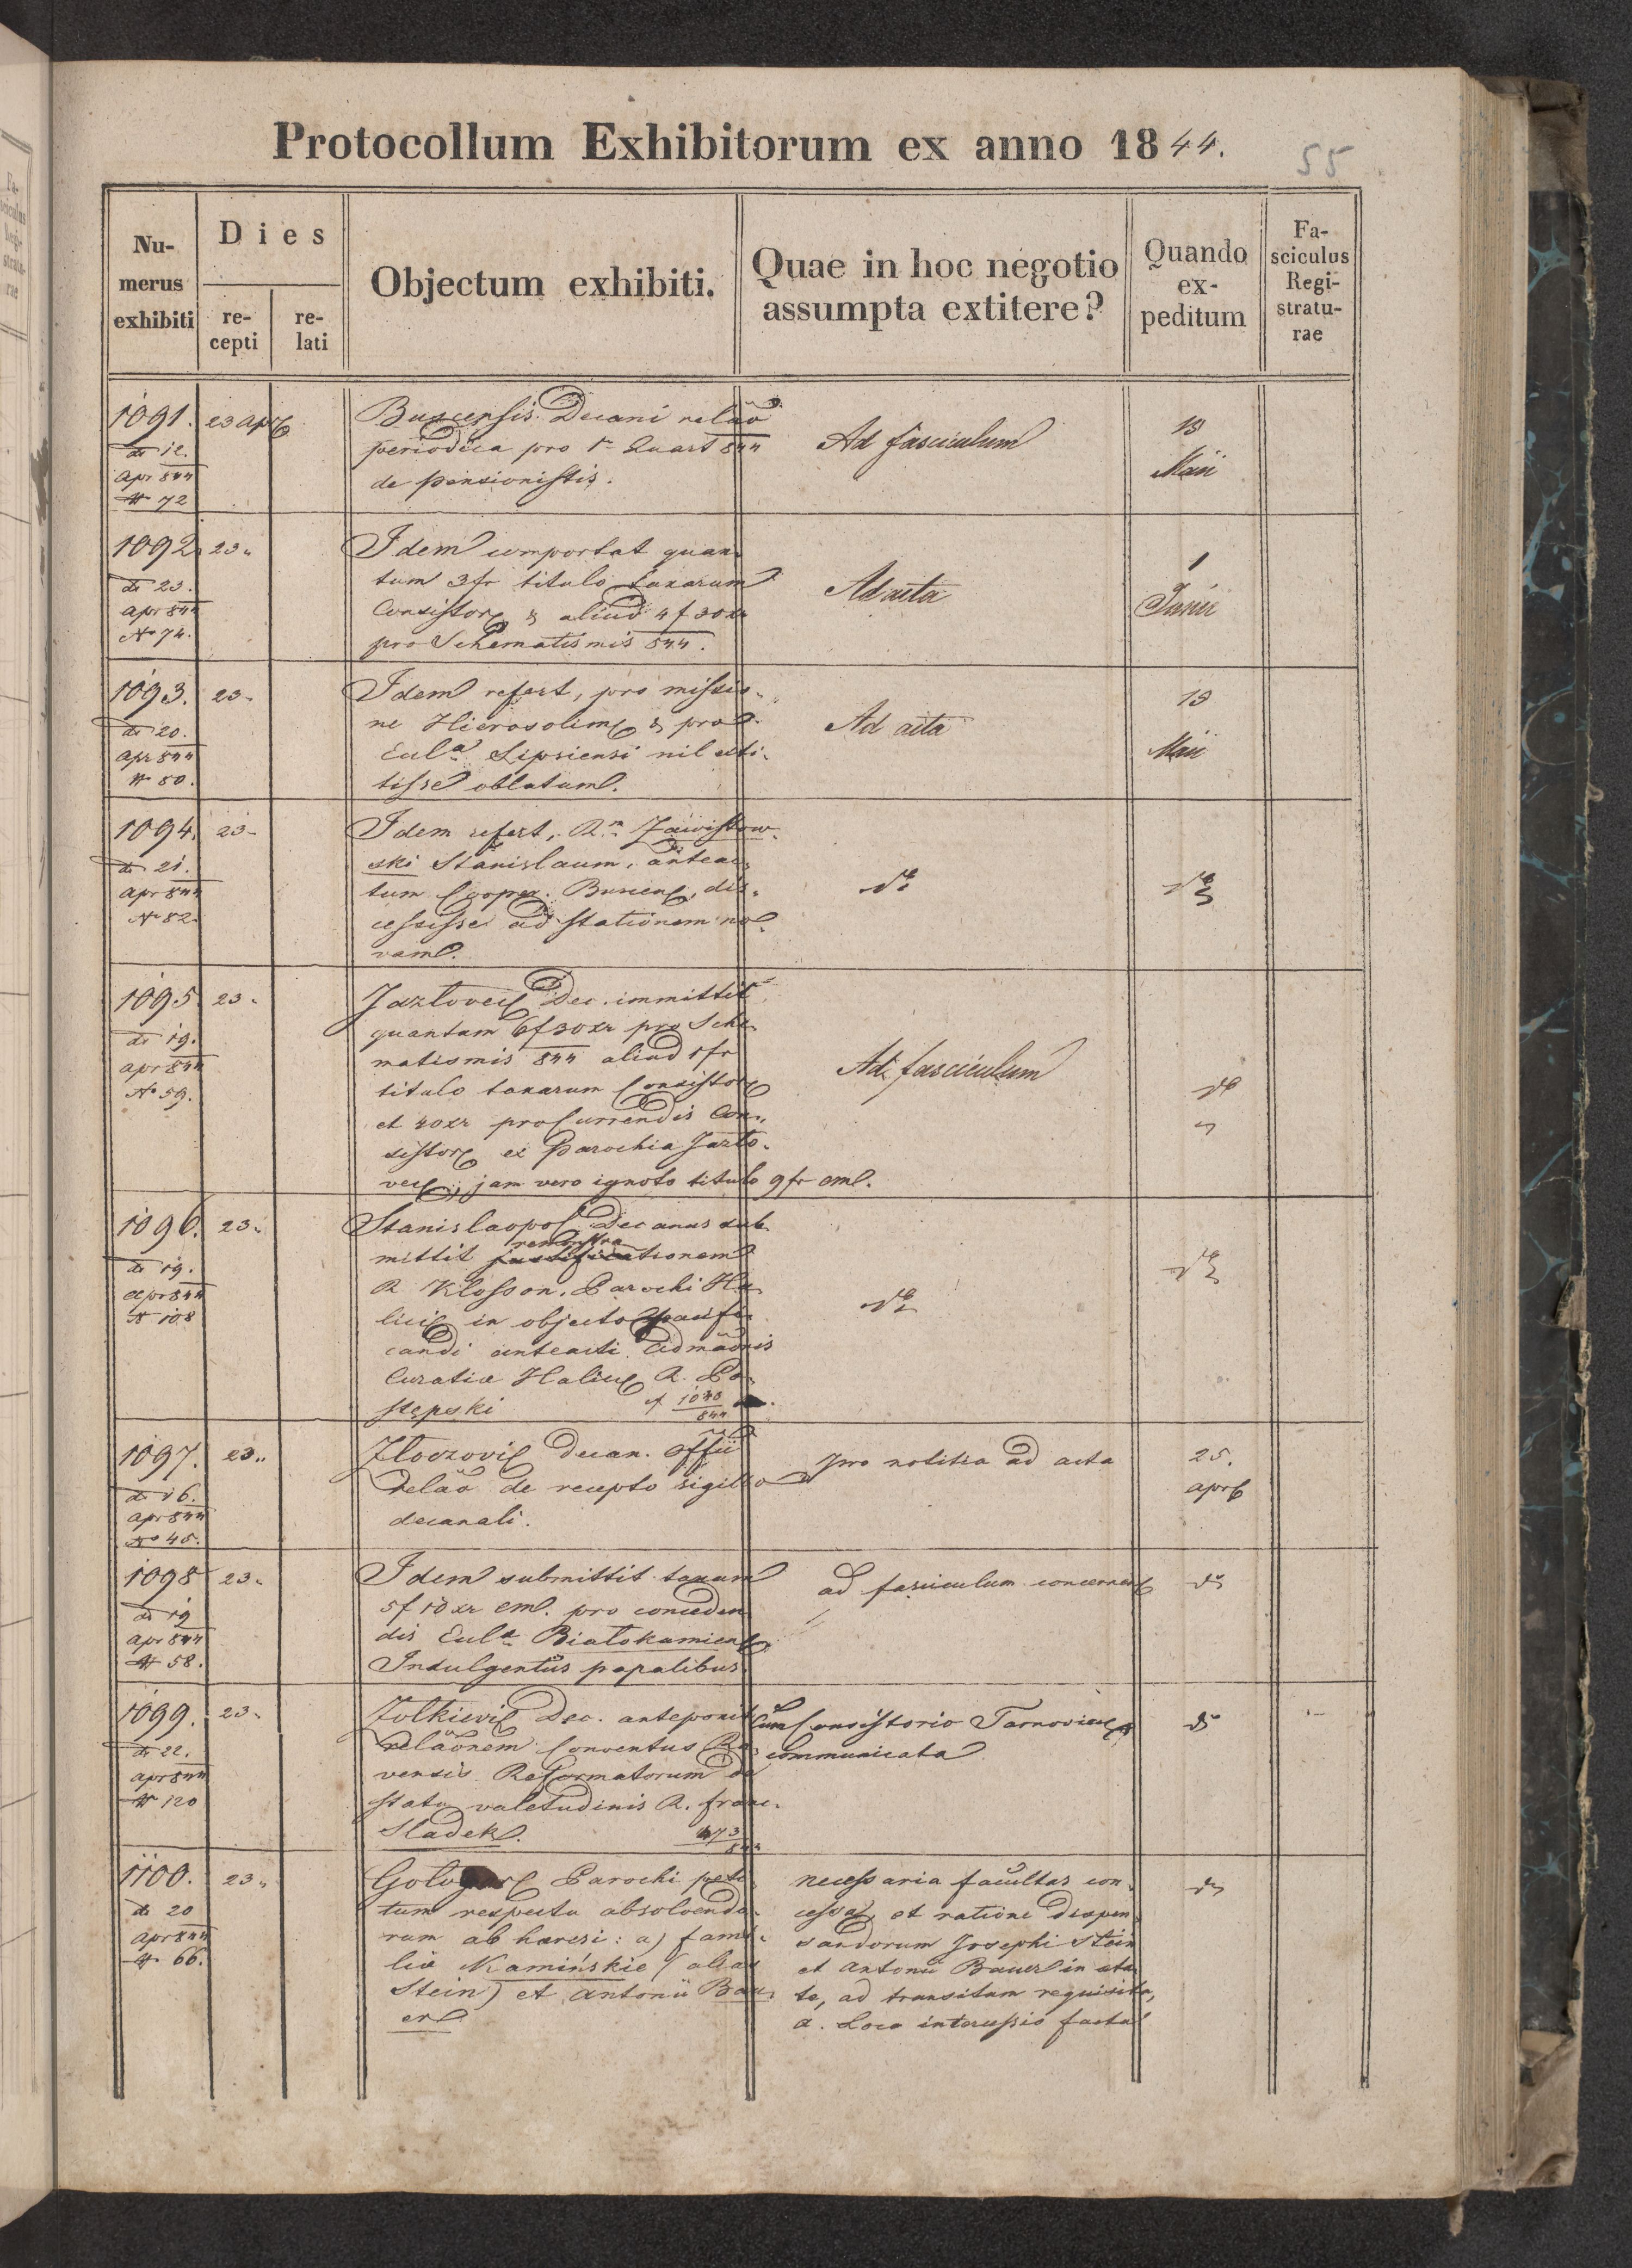 Protocollum Exhibitorum ex anno 1844.
55
Nu-
merus
exhibiti
Dies
re-
cepti
re-
lati
Objectum exhibiti.
Quae in hoc negotio
assumpta extitere?
Quando
ex-
peditum
Fa-
sciculus
Regi-
stratu-
rae
1091.
12.
apr 844
N 72
23 apr
Buscensis Decani relāo
periodica pro 1 Quart 844
de pensionistis.
Ad fasciculum
13
Maii
1092
23.
apr 844
No 74.
23.
Idem comportat quan-
tum 3 fr titulo taxarum
Consistor & aliud 4 f 30 xr
pro Schematismis 844.
Ad acta
1
1093.
20.
apr 844
N 80.
23.
Idem refert, pro missio-
ne Hierosolim & pro
Eula Lipsiensi nil exti-
tisse oblatum.
Ad acta
13
Maii
1094.
21.
apr 844
No 82.
23
Idem refert, Rm Zawistow-
ski Stanislaum, anteac-
tum Cooper. Buscen, dis-
cessisse ad stationem no-
vam.
1095
19.
apr 844
No 59.
23.
Jazlovec Dec. immittit
quantum 6 f 30 xr pro Sche-
matismis 844 aliud 1 fr
titulo taxarum Consistor
et 40 xr pro Currendis Con-
sistor ex Parochia Jazlo-
vec, jam vero ignoto titulo 9 fr cml.
1096.
19.
apr 844
N 108
23.
Stanislaopol Decanus sub-
mittit justificationem
R Klosson, Parochi Ha-
licic in objecto
candi anteacti Admādnis
Curatiæ Halic R. Po-
stępski
1040
844
1097.
16.
apr 844
No 45.
23.
Zloczovic decan. Offii
relāo de recepto sigillo
decanali.
pro notitia ad acta
25.
apr
1098
19
apr 844
N 58.
23.
Idem submittit taxam
5 f 10 xr cml. pro conceden-
dis Eula Białokamien
Indulgentiis papalibus.
ad fasciculum concernen
1099.
22.
apr 844
N 120
23.
Zolkievic Dec. anteponit
relāonem Conventus Ra-
vensis Reformatorum de
statu valetudinis R. franc.
Sladek.
473
844
Cum Consistorio Tarnovien
communicata
1100.
20
apr 844
N 66.
23.
Parochi peti-
tum respectu absolvendo-
rum ab hæresi: a) fami-
liæ Kamińskie (alias
Stein) et Antonii Bau-
er
necessaria facultas con-
cessa, et ratione dispen-
sandorum Josephi Stein
et Antonii Bauer in æta-
te, ad transitum requisita,
a. Loco intercessio facta